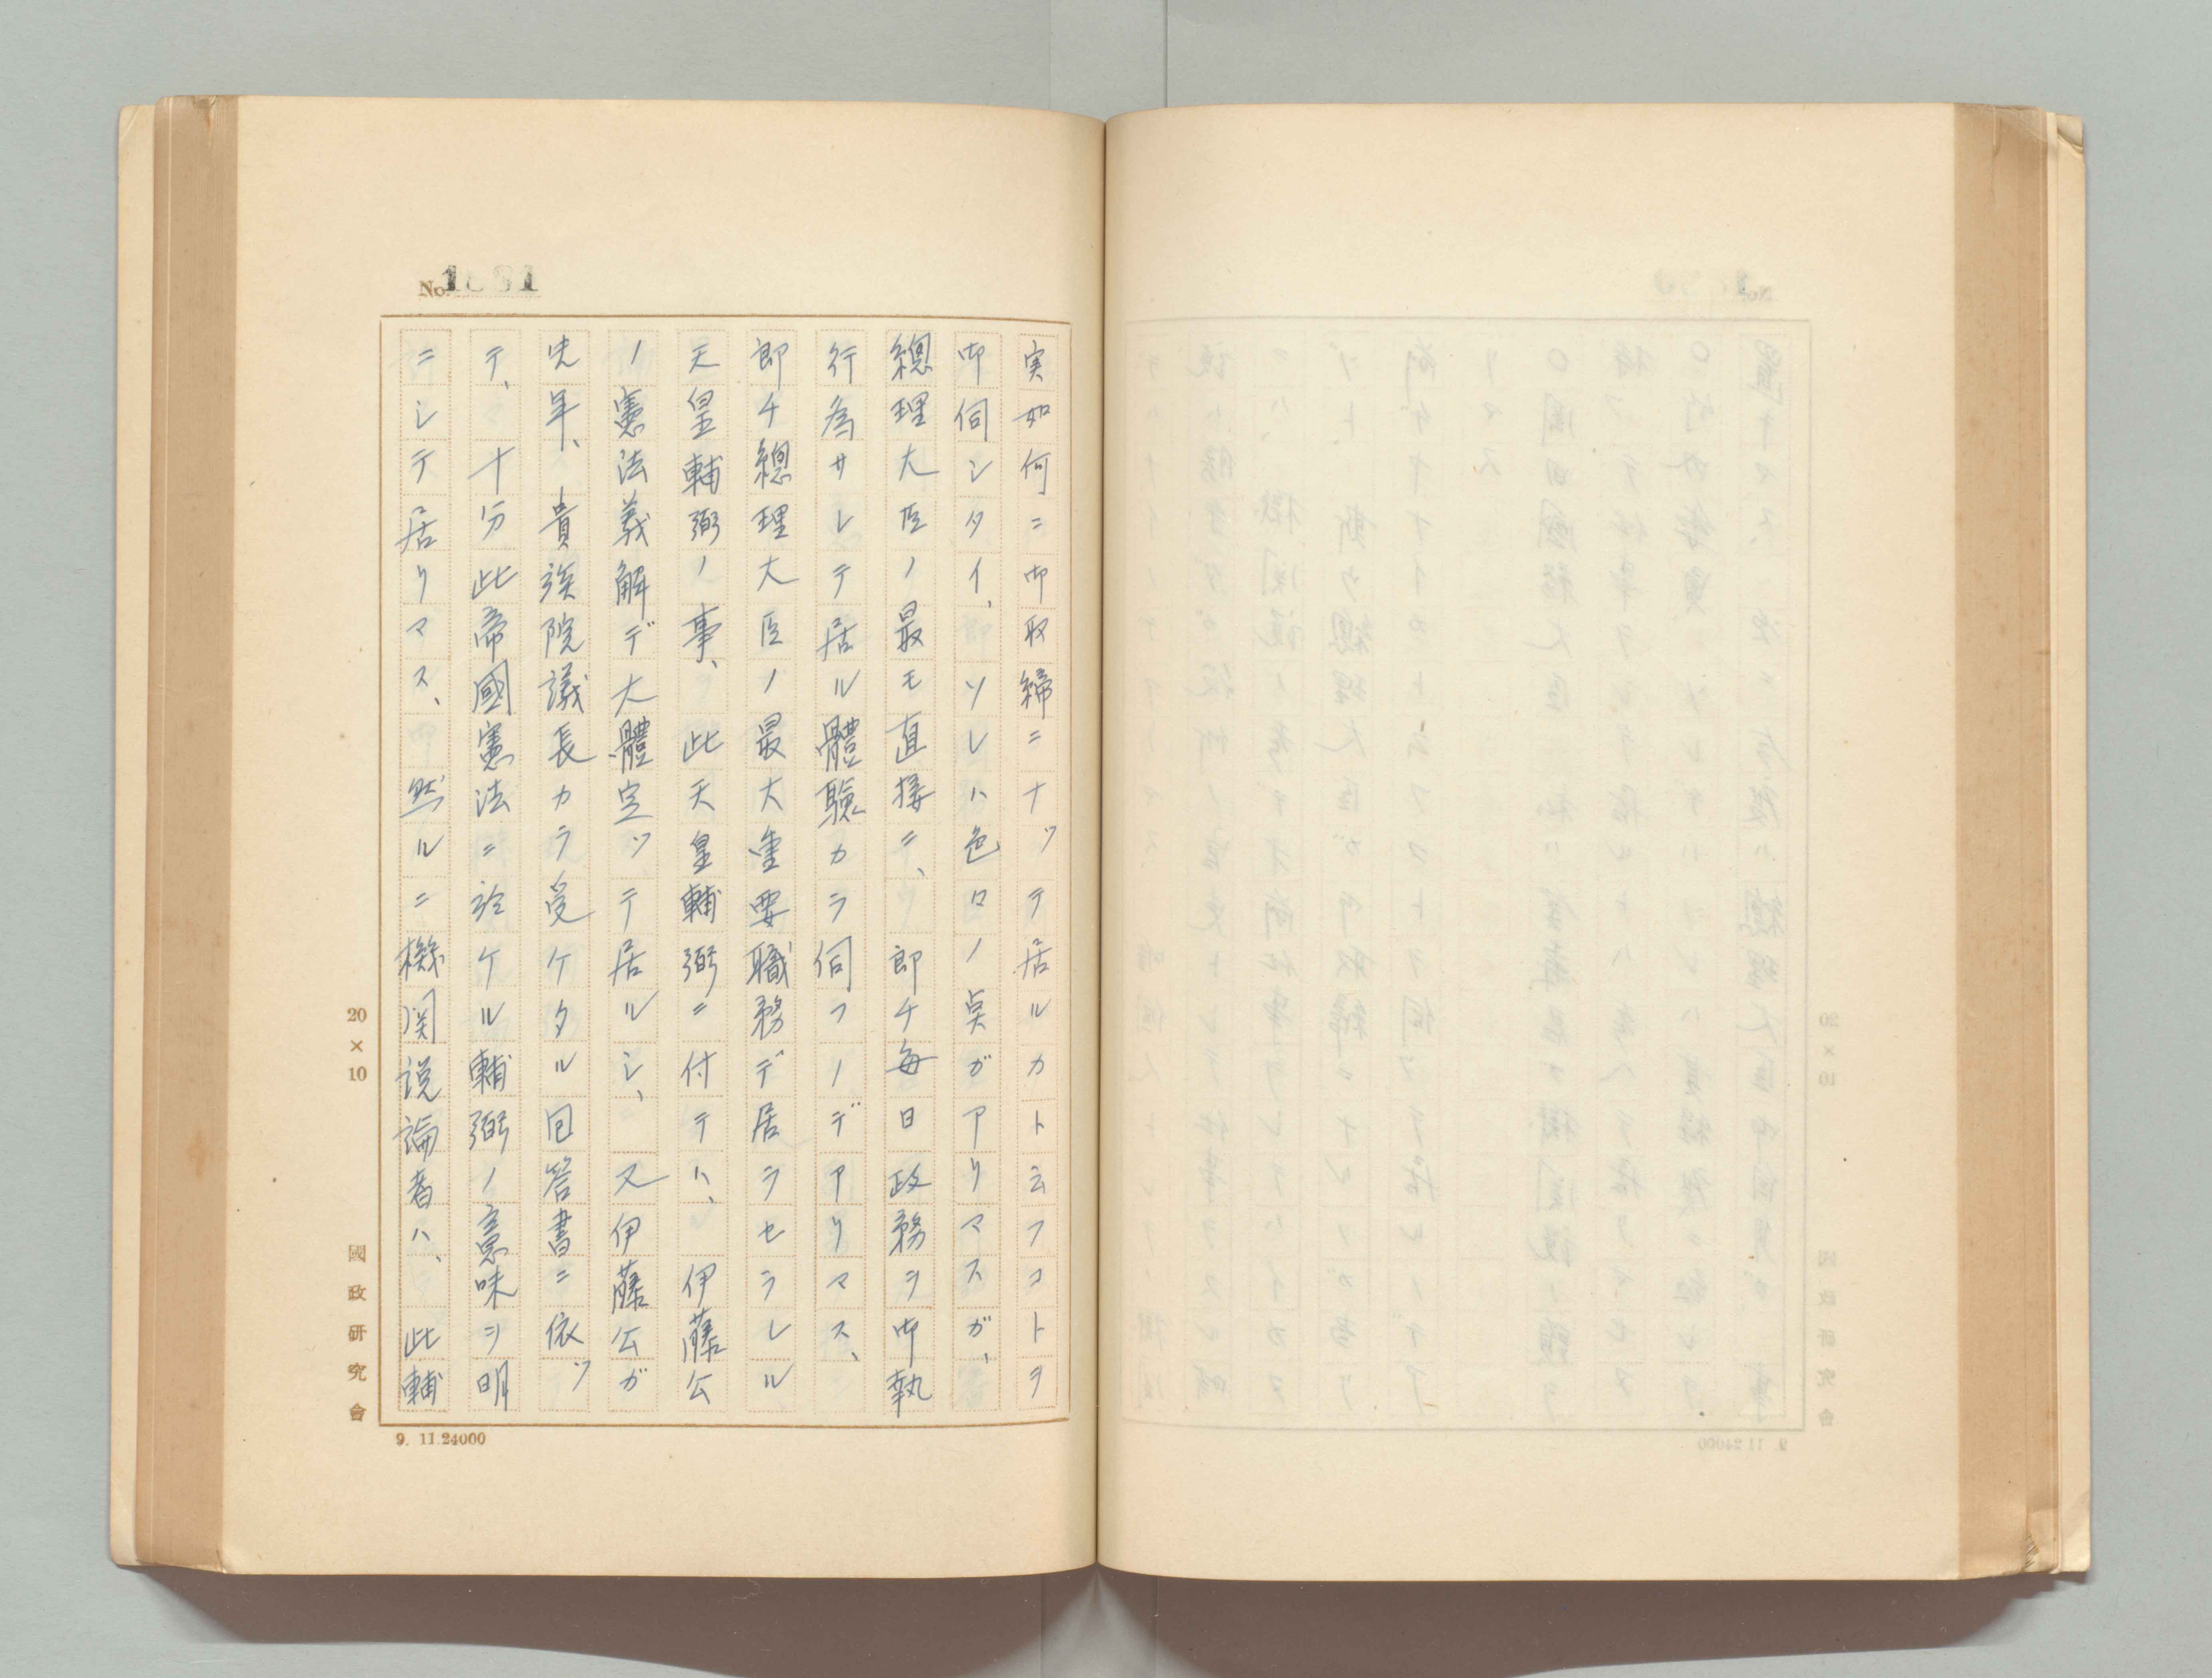 No. 1831
実如何ニ御取締ニナツテ居ルカト云フコトヲ
御伺シタイ、ソレハ色ロノ点ガアリマスガ、
總理大臣ノ最モ直接ニ、即チ毎日政務ヲ御執
行為サレテ居ル體驗カラ伺フノデアリマス、
即チ總理大臣ノ最大重要職務デ居ラセラレル
天皇輔弼ノ事、此天皇輔弼ニ付テハ、伊藤公
ノ憲法義解デ大體定ツテ居ルシ、又伊藤公ガ
先年、貴族院議長カラ受ケタル回答書ニ依ツ
テ、十分此帝國憲法ニ於ケル輔弼ノ意味ヲ明
ニシテ居リマス、然ルニ機関説論者ハ、此輔
20×10
國政研究會
9. 11.24000